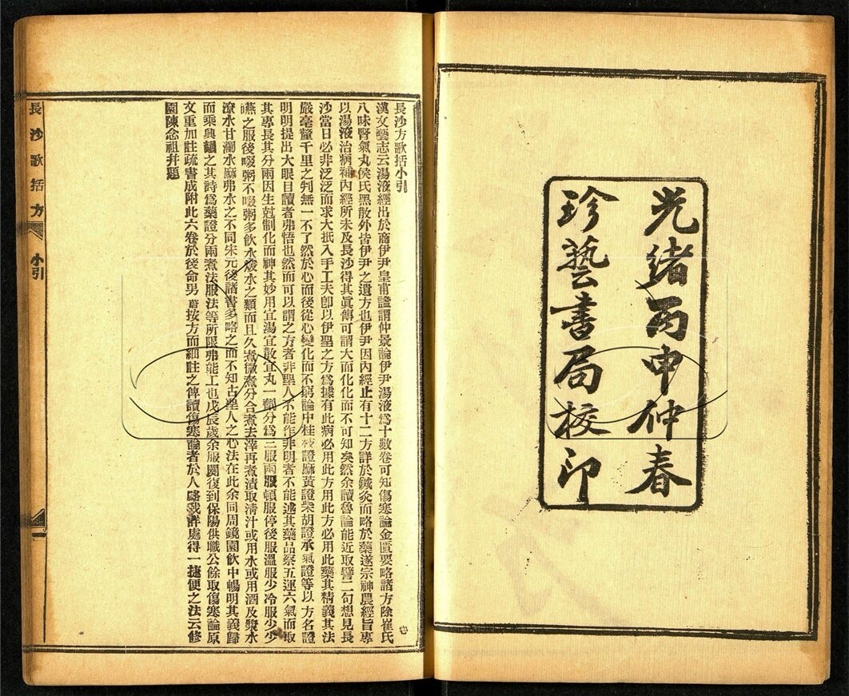 光緒丙申仲春
珍藝書局校印
長沙方歌括小引
漢文藝志云湯液經出於商伊尹皇甫謐謂仲景論伊尹湯液爲十數卷可知傷寒論金匱要略諸方除崔氏
八味腎氣丸侯氏黑散外皆伊尹之遺方也伊尹因內經止有十二方詳於鍼灸而略於藥遂宗神農經旨專
以湯液治病補內經所未及長沙得其眞傳可謂大而化化而不可知矣然余讀魯論能近取譬二句想見長
沙當日必非泛泛而求大抵入手工夫卽以伊聖之方爲據有此病必用此方用此方必用此藥其精義其法
嚴毫釐千里之判無一不了然於心而後從心變化而不窮論中桂枝證麻黃證柴胡證承氣證等以方名證
明明提出大眼目讀者弗悟也然而可以謂之方者非聖人不能作非明者不能述其藥品察五運六氣而取
其專長其分兩因生尅制化而神其妙用宜湯宜散宜丸一劑分爲三服兩服頓服停後服溫服少冷服少少
嚥之服後啜粥不啜粥多飲水煖水之類而且久煮微煮分合煮去滓再煮漬取清汁或用水或用酒及漿水
潦水甘瀾水麻弗水之不同宋元後諸書多略之而不知古聖人之心法在此余同周鏡園飲中暢明其義歸
而乘興韻之其詩爲藥證分兩煮法服法等所限弗能工也戊辰歲余服闋復到保陽供職公餘取傷寒論原
文重加註疏書成附此六卷於後命男蔚按方而細註之俾讀傷寒論者於人略我詳處得一捷便之法云修
園陳念祖幷題
長沙歌括方
小引